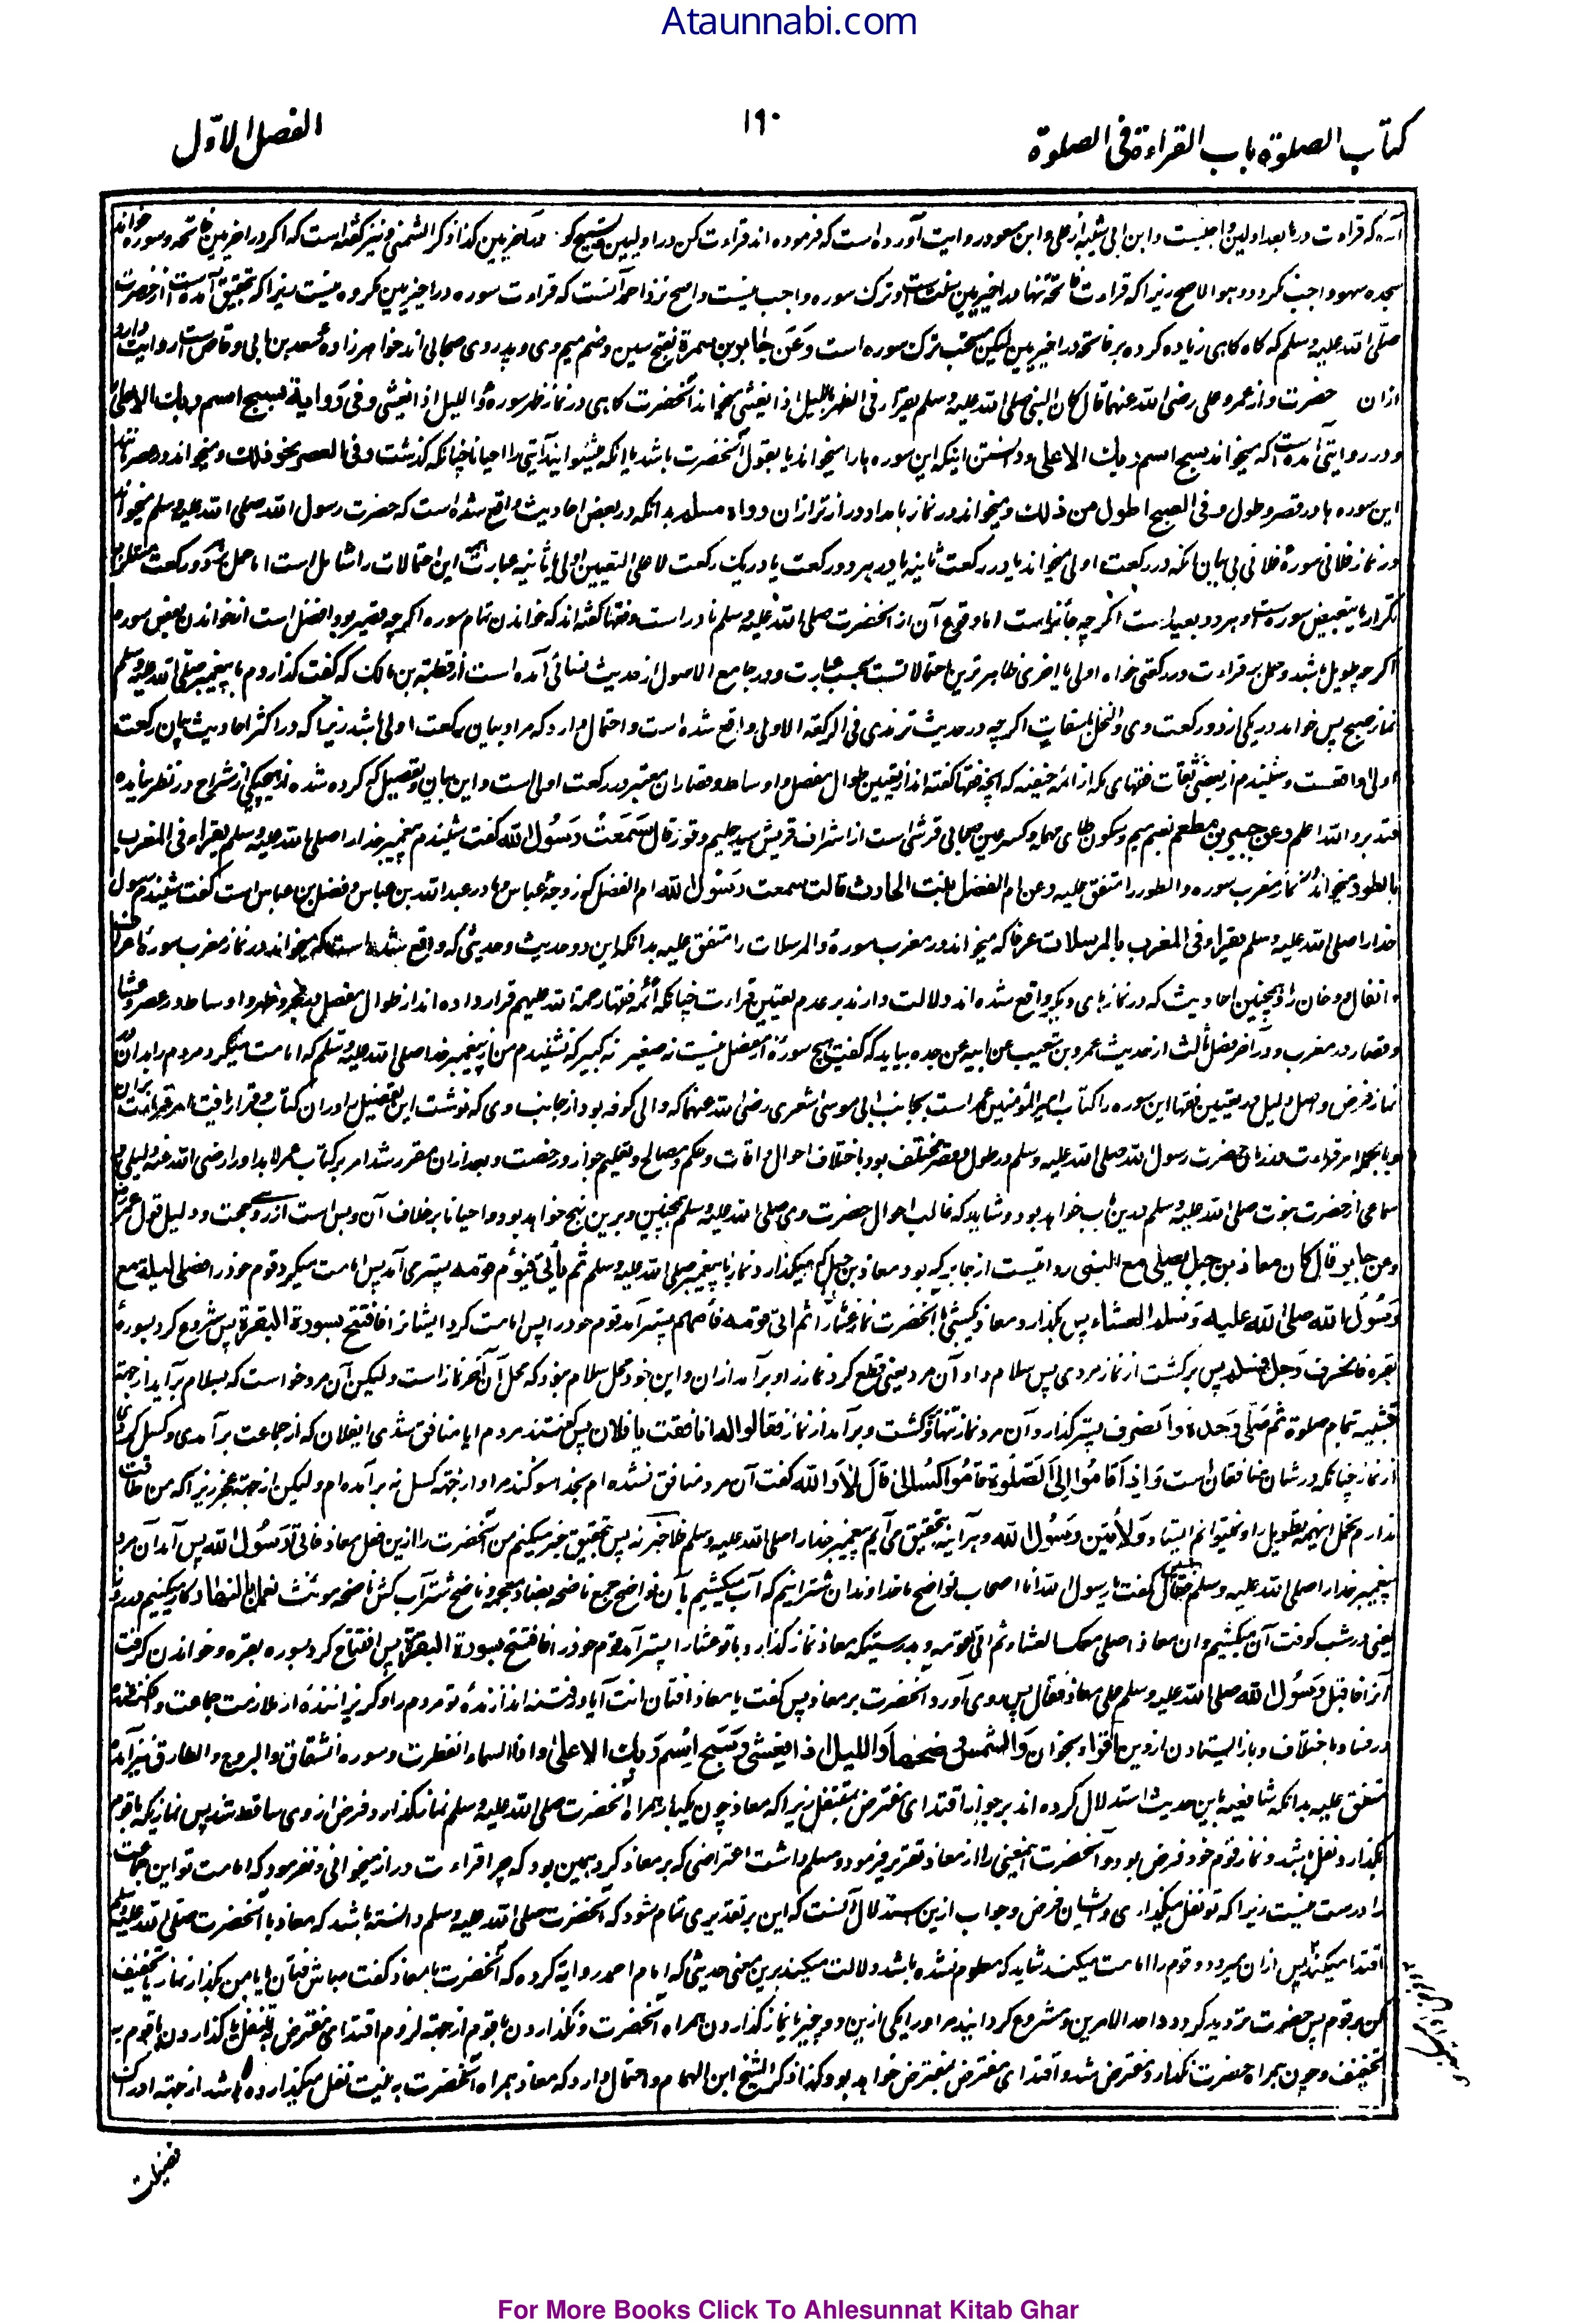 Ataunnabi.com
کتاب الصلوة باب القراءة فی الصلوة
۱۹۰
الفصل الاوّل
که قراءت در مابعد اولیین واجبست و ابن ابی شیبه از علی و ابن مسعود روایت آورده است که فرموده اند قراءت کن در اولیین و تسبیح گو در آخریین کذا ذکر الشمنی و نیز گفته است که اگر در اخریین فاتحه و سوره خواند
سجده سهو واجب نگردد و هو الاصح زیرا که قراءت فاتحه تنها در اخیریین سنت است و ترک سوره واجب نیست و اصح نزد احمد آنست که قراءت سوره در اخیریین مکروه نیست زیرا که بتحقیق آمده است از حضرت
صلی الله علیه وسلم که گاه گاهی زیاده کرده بر فاتحه در اخیریین لیکن مستحب ترک سوره است وعن جابر بن سمرة بفتح سین و ضم میم وی و پدر وی صحابی اند خواهرزاده سعد بن ابی وقاص است روایت دارد
ازان حضرت و از عمر و علی رضی الله عنهما قال کان النبی صلی الله علیه وسلم یقرأ فی الظهر باللیل اذا یغشی میخواند آنحضرت گاهی در نماز ظهر سورهٔ واللیل اذا یغشی وفی روایة بسبح اسم ربک الاعلی
و در روایتی آمده است که میخواند سبح اسم ربک الاعلی و دانستن اینکه این سوره ها را میخواند یا بقول آنحضرت باشد یا آنکه میشنوانید آیتی را احیانا چنانکه گذشت وفی العصر نحو ذلک و میخواند در عصر مانند
این سوره ها در قصر و طول وفی الصبح اطول من ذلک و میخواند در نماز بامداد درازتر ازان رواه مسلم بدانکه در بعض احادیث واقع شده است که حضرت رسول الله صلی الله علیه وسلم میخواند
در نماز فلانی سورهٔ فلانی بی بیان آنکه در رکعت اولی میخواند یا در رکعت ثانیه یا در هر دو رکعت یا در یک رکعت لا علی التعیین اولی یا ثانیه عبارت این احتمالات را شامل است اما حمل بر دو رکعت
تکرار یا تبعیض سورت است و هر دو بعید است اگرچه جائز است اما وقوع آن از آنحضرت صلی الله علیه وسلم نادر است و فقها گفته اند که خواندن تمام سوره اگرچه قصیر بود افضل است از خواندن بعض سوره
اگرچه طویل باشد و حمل بر قراءت در رکعتی خواه اولی یا اخری ظاهرترین احتمالاتست بحسب عبارت و در جامع الاصول از حدیث نسائی آمده است از قطبة بن مالک که گفت گذاردم با پیغمبر صلی الله علیه وسلم
نماز صبح پس خواند در یکی از دو رکعت وی والنخل باسقات اگرچه در حدیث ترمذی فی الرکعة الاولی واقع شده است و احتمال دارد که مراد بیان رکعت اولی باشد زیرا که در اکثر احادیث بیان رکعت
اولی واقعست و شنیدم از بعضی ثقات فقهای مکه از ائمه حنفیه که آنچه فقها گفته اند از تعیین طوال مفصل و اوساط و قصار آن معتبر در رکعت اولی است و این بیان و تفصیل که کرده شده از هیچ یکی از شراح در نظر نیامده
فتدبر والله اعلم وعن جبیر بن مطعم بضم میم و سکون طای مهمله و کسر عین صحابی قرشی است از اشراف قریش سید حلیم و وقور قال سمعت رسول الله گفت شنیدم پیغمبر خدا را صلی الله علیه وسلم یقرأ فی المغرب
بالطور میخواند در نماز مغرب سوره والطور را متفق علیه وعن ام الفضل بنت الحارث قالت سمعت رسول الله ام الفضل که زوجهٔ عباس و مادر عبدالله بن عباس و فضل بن عباس است گفت شنیدم رسول
خدا را صلی الله علیه وسلم یقرأ فی المغرب بالمرسلات عرفا که میخواند در مغرب سورهٔ والمرسلات را متفق علیه بدانکه این دو حدیث و حدیثی که واقع شده است که میخواند در نماز مغرب سورهٔ اعراف
و انفال و دخان را و همچنین احادیث که در نمازهای دیگر واقع شده اند دلالت دارند بر عدم تعیین قراءت چنانکه ائمه فقها رحمة الله علیهم قرار داده اند از طوال مفصل در فجر و ظهر و اوساط در عصر و عشا
و قصار در مغرب و در آخر فصل ثالث از حدیث عمرو بن شعیب عن ابیه عن جده بیاید که گفت هیچ سورهٔ از مفصل نیست نه صغیر نه کبیر که نشنیدم من از پیغمبر خدا صلی الله علیه وسلم که امامت میکرد مردم را بدان در
نماز فرض و اصل و دلیل در تعیین فقها این سوره را کتاب امیر المؤمنین عمر است بجانب ابی موسی اشعری رضی الله عنهما که والی کوفه بود از جانب وی که نوشت این تفصیل را در ان کتاب و قرار یافت امر قراءت بران
و بالجمله امر قراءت در زمان حضرت رسول الله صلی الله علیه وسلم در طول و قصر مختلف بود باختلاف احوال و اوقات و حکم و مصالح و تعلیم جواز و رخصت و بعد ازان مقرر شد امر بر کتاب عمر لابد او را رضی الله عنه دلیلی و
سماعی از حضرت نبوت صلی الله علیه وسلم درین باب خواهد بود و شاید که غالب احوال حضرت وی صلی الله علیه وسلم همچنین و برین نهج خواهد بود و احیانا بر خلاف آن و بس است از روی حجت و دلیل قول عمر
وعن جابر قال کان معاذ بن جبل یصلی مع النبی روایتست از جابر که بود معاذ بن جبل که میگذارد نماز با پیغمبر صلی الله علیه وسلم ثم یأتی فیؤم قومه پستر می آمد پس امامت میکرد قوم خود را فصلی لیلة مع
رسول الله صلی الله علیه وسلم العشاء پس بگذارد معاذ یکشبی با آنحضرت نماز عشا را ثم اتی قومه فأمهم پستر آمد قوم خود را پس امامت کرد ایشانرا فافتتح بسورة البقرة پس شروع کرد بسورهٔ
بقره فانحرف رجل فسلم پس برگشت از نماز مردی پس سلام داد آن مرد یعنی قطع کرد نماز را و برآمد ازان و این خود محل سلام نبود که محل آن آخر نماز است ولیکن آن مرد خواست که بسلام برآید از جهة
تشبیه تمام صلوة ثم صلی وحده وانصرف پستر گذارد آن مرد نماز تنها و گشت و برآمد از نماز فقالوا له انافقت یا فلان پس گفتند مردم ایا منافق شدی ای فلان که از جماعت برآمدی و کسل کردی
از نماز چنانکه در شان منافقان است واذا قاموا الی الصلوة قاموا کسالی قال لا والله گفت آن مرد منافق نشده ام بخدا سوگند مرا و از جهة کسل نه برآمده ام ولیکن از جهة عجز زیرا که من طاقت
ندارم تحمل اینهمه تطویل را و نمیتوانم ایستاد ولآتین رسول الله و هرآینه بتحقیق می آیم پیغمبر خدا را صلی الله علیه وسلم فلأخبرنه پس بتحقیق خبر میکنم من آنحضرت را ازین فعل معاذ فاتی رسول الله پس آمد آن مرد
پیغمبر خدا را صلی الله علیه وسلم فقال گفت یا رسول الله انا اصحاب نواضح ما خداوندان شترانیم که آب میکشیم بآن نواضح جمع ناضحه بضاد معجمه و ناضح شتر آب کش ناضحه مونث نعمل بالنهار کار میکنیم در روز
یعنی در شب کوفت آن میکشیم وان معاذا صلی معک العشاء ثم اتی قومه و بدرستیکه معاذ نماز گذارد با تو عشا را پستر آمد قوم خود را فافتتح بسورة البقرة پس افتتاح کرد بسوره بقره و خواندن گرفت
آنرا فاقبل رسول الله صلی الله علیه وسلم علی معاذ فقال پس روی آورد آنحضرت بر معاذ پس گفت یا معاذ افتان انت آیا در فتنه اندازندهٔ تو مردم را و گریزانندهٔ از ملازمت جماعت
در فساد باختلاف و باز ایستادن از دین اقرأ بخوان والشمس وضحها واللیل اذا یغشی وسبح اسم ربک الاعلی و اذا السماء انفطرت و سوره انشقاق والبروج والطارق نیز آمده
متفق علیه بدانکه شافعیه باین حدیث استدلال کرده اند بر جواز اقتدای مفترض بمتنفل زیرا که معاذ چون یکبار همراه آنحضرت صلی الله علیه وسلم نماز گذارد و فرض از وی ساقط شد پس نمازیکه با قوم
بگذارد نفل باشد و نماز قوم خود فرض بود و آنحضرت اینمعنی را از معاذ تقریر فرمود و مسلم داشت اعتراضی که بر معاذ کرد همین بود که چرا قراءت دراز میخوانی و نفرمود که امامت تو این جماعت
را درست نیست زیرا که تو نفل میگذاری و ایشان فرض و جواب ازین استدلال آنست که این بر تقدیری تمام شود که آنحضرت صلی الله علیه وسلم دانسته باشد که معاذ با آنحضرت صلی الله علیه وسلم
اقتدا میکند پس ازان میرود و قوم را امامت میکند شاید که معلوم نشده باشد و دلالت میکند برین معنی حدیثی که امام احمد روایة کرده که آنحضرت با معاذ گفت مباش فتان یا بامن بگذار نماز یا تخفیف
کن بر قوم پس حضرت تردید کرد در احد الامرین و مشروع گردانید مر او را یکی ازین دو چیز یا نماز گذاردن همراه آنحضرت و نگذاردن با قوم از جهة لزوم اقتدای مفترض بمتنفل یا گذاردن با قوم به
تخفیف و چون همراه حضرت نگذارد مفترض شد و اقتدای مفترض بمفترض خواهد بود کذا ذکر الشیخ ابن الهمام و احتمال دارد که معاذ همراه آنحضرت به نیت نفل میگذارده باشد از جهة ادراک
فضیلت
For More Books Click To Ahlesunnat Kitab Ghar